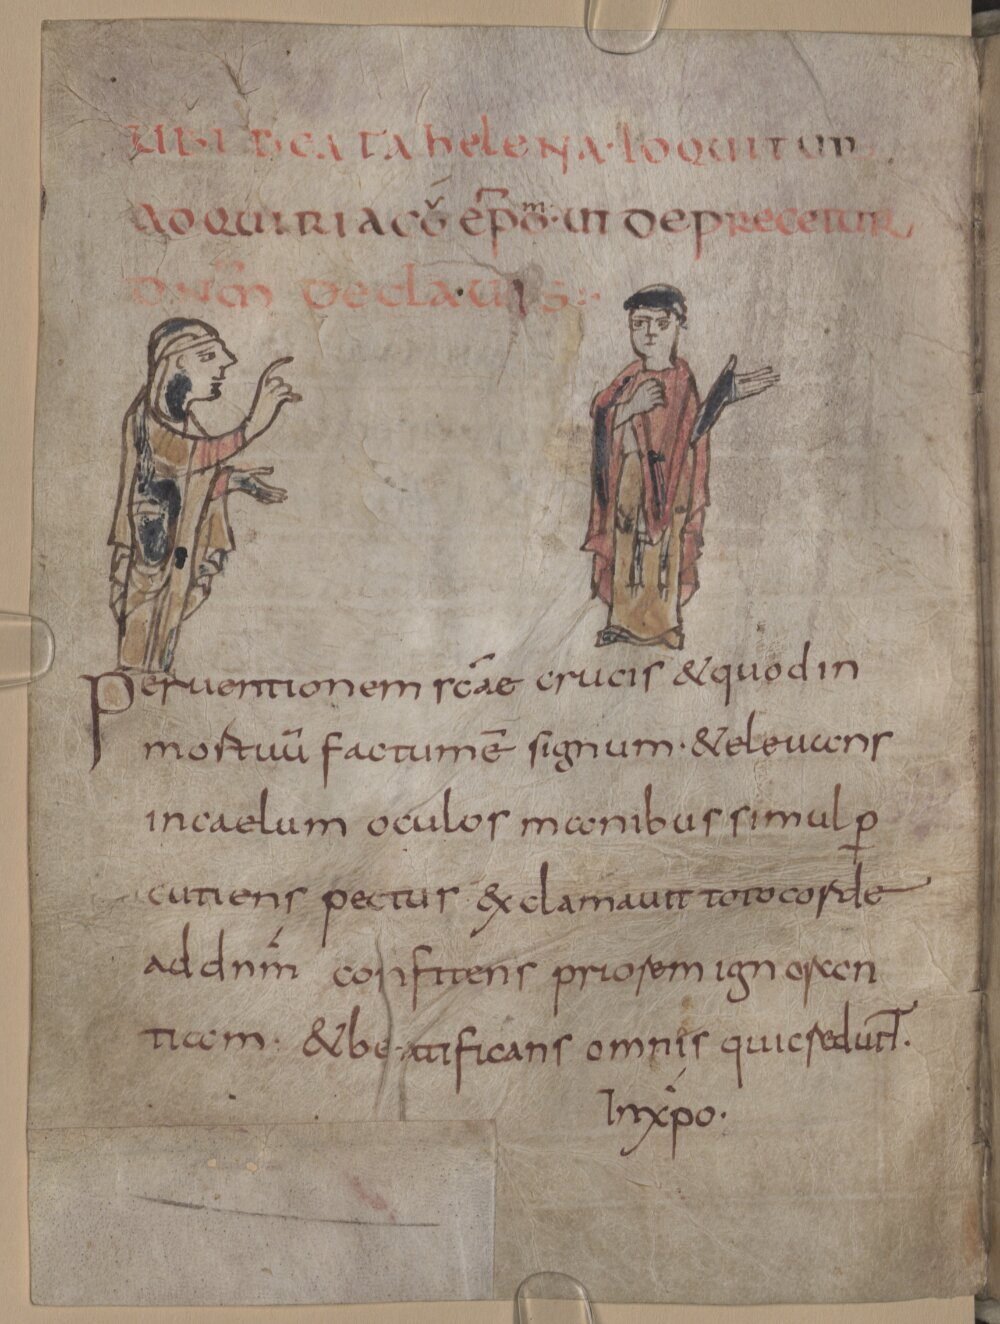 UBI BEATA helena·loquitur
AD QUIRIACŪ EP̄M·UT DEPRECETUR
DN̄M DE CLAVIS:·
Peruentionem sc̄ae crucis &quod in
mortuū factumē signum·&eleuans
incaelum oculos manibus simul p̱
cutiens pectus &xclamauit toto corde
ad dn̄m confitens priorem ignoran
tiam· &beatificans omnis qui credunt̄.
Inx̄po·